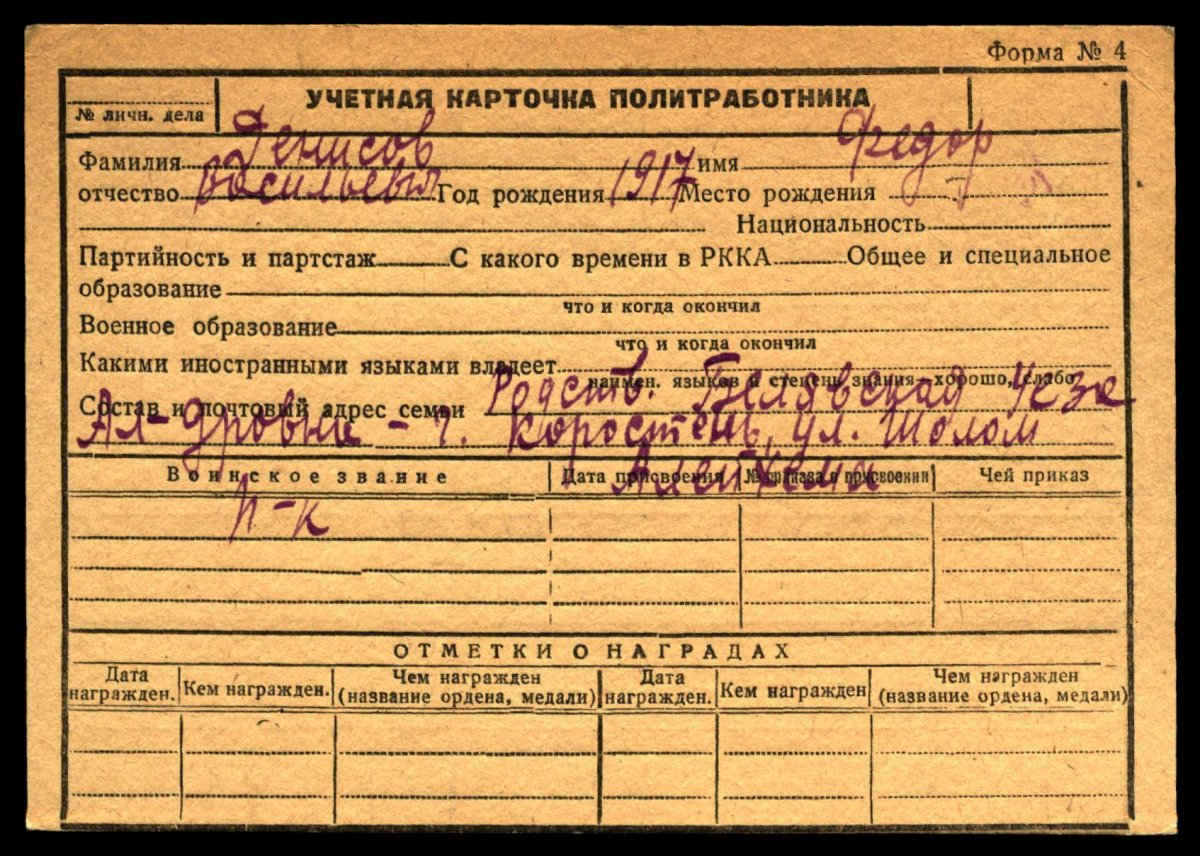 Форма № 4
№ личн. дела
УЧЕТНАЯ КАРТОЧКА ПОЛИТРАБОТНИКА
Фамилия Денисов имя Федор
отчество Васильевич Год рождения 1917 Место рождения
Национальность
Партийность и партстаж С какого времени в РККА Общее и специальное
образование
что и когда окончил
Военное образование
что и когда окончил
Какими иностранными языками владеет
наимен. языков и степень знания хорошо, слабо
Состав и почтовый адрес семьи Родств. Белявская
Ал-дровна - г. Коростень, ул. Шолом
Алейхема
Воинское звание Дата присвоения № приказа о присвоении Чей приказ
п-к
ОТМЕТКИ О НАГРАДАХ
Дата награжден. Кем награжден. Чем награжден (название ордена, медали) Дата награжден. Кем награжден Чем награжден (название ордена, медали)